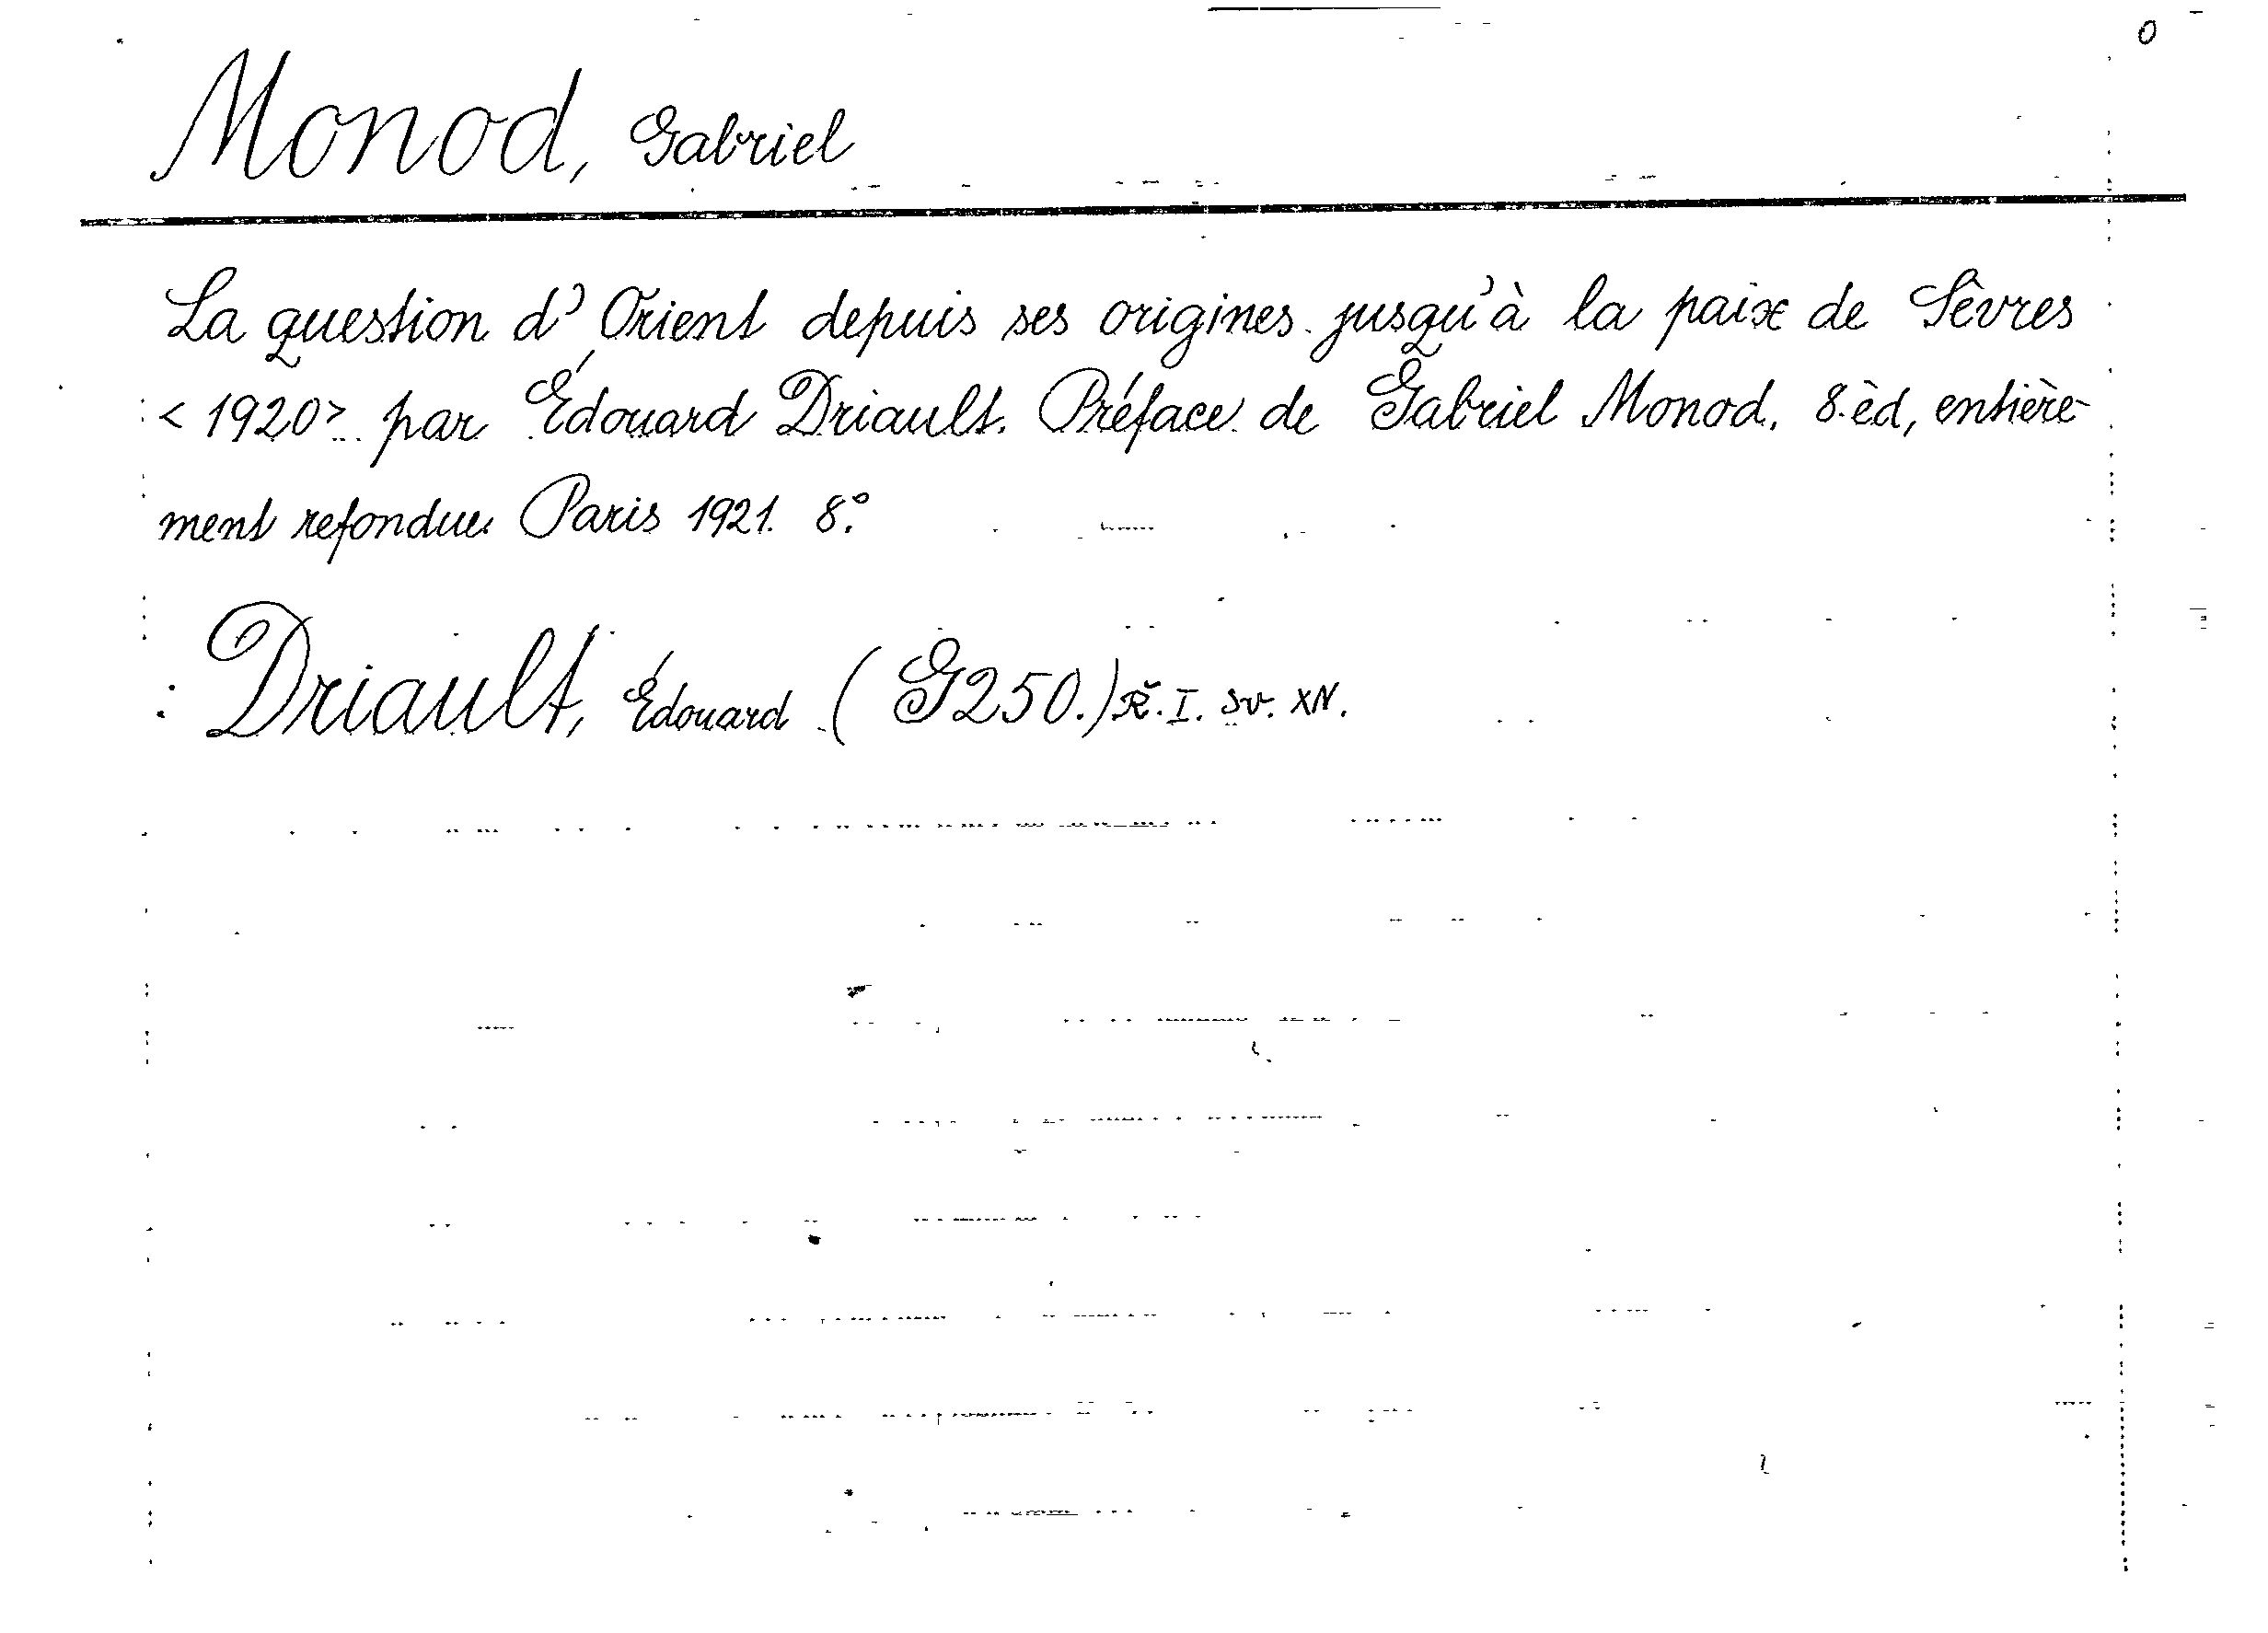 0
Monod, Gabriel
La question d'Orient depuis ses origines jusqu'à la paix de Sèvres
<1920> par Édouard Driault. Préface de Gabriel Monod. 8.èd, entière-
ment refondue. Paris 1921. 8.°
: Driault, Édouard (G250.) Ř. I. sv. XIV.